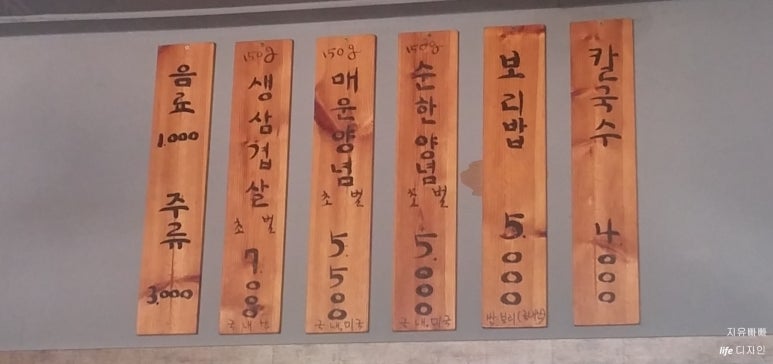 음료
1.000
주류
3.000
150g
생삼겹살
초벌
7.000
국내산
150g
매운양념
초벌
5.500
국내.미국
150g
순한양념
초벌
5.000
국내.미국
보리밥
5.000
칼국수
4000
지유빠빠
life 디자인